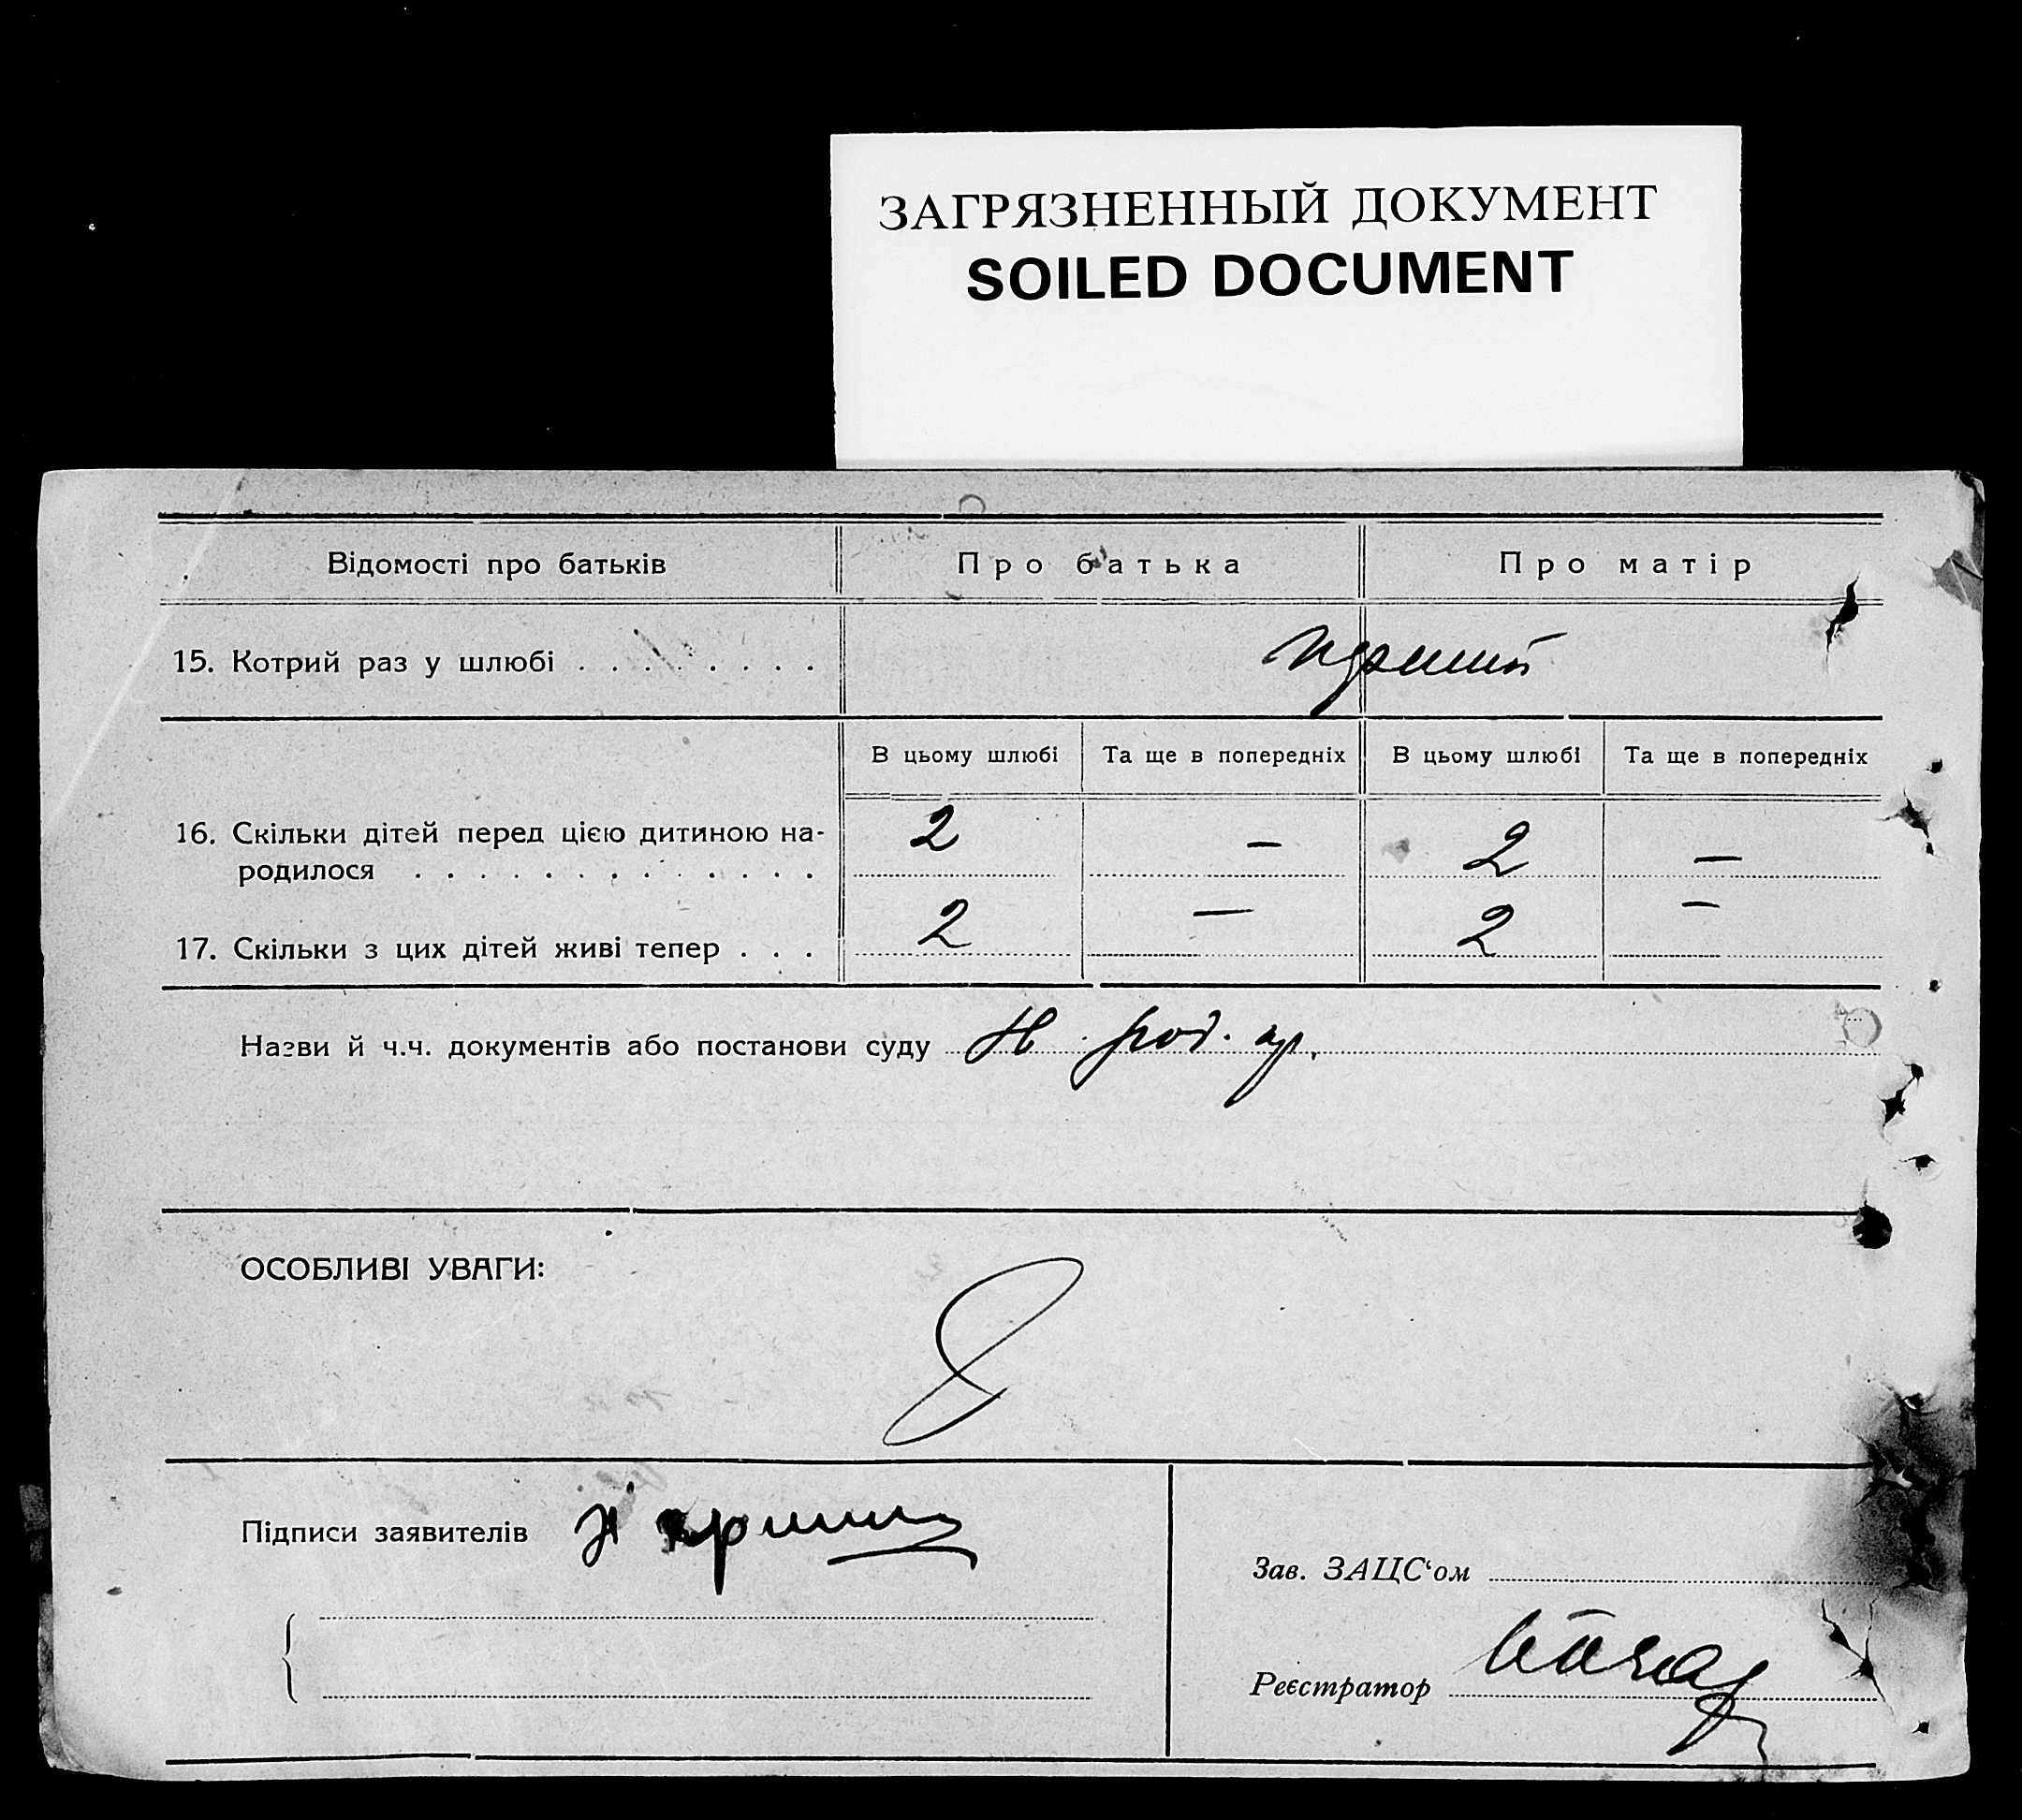 ЗАГРЯЗНЕННЫЙ ДОКУМЕНТ
SOILED DOCUMENT
Відомості про батьків Про батька Про матір
15. Котрий раз у шлюбі . . . . . . . . .
В цьому шлюбі Та ще в попередніх В цьому шлюбі Та ще в попередніх
16. Скільки дітей перед цією дитиною на-
родилося . . . . . . . . . . . . . 2 — 2 —
17. Скільки з цих дітей живі тепер . . . 2 — 2 —
Назви й ч.ч. документів або постанови суду
ОСОБЛИВІ УВАГИ:
Підписи заявителів
Зав. ЗАЦС‘ом
Реєстратор